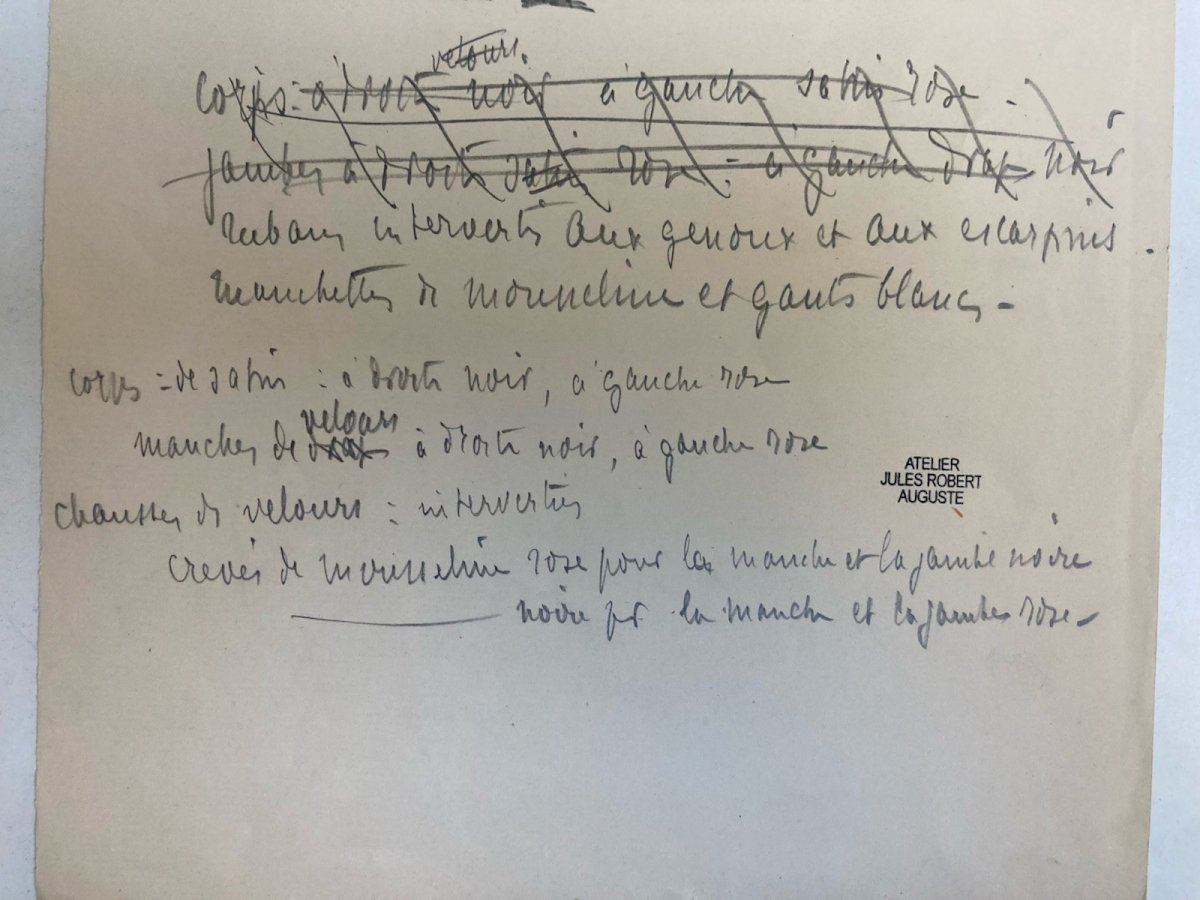 velours.
corps : à droite noir à gauche satin rose -
jambes à droite satin rose : à gauche drap noir
rubans intervertis aux genoux et aux escarpins.
manchettes de mousseline et gants blancs -
corps : de satin : à droite noir, à gauche rose
velours
manches de drap à droite noir, à gauche rose
ATELIER
JULES ROBERT
AUGUSTE
chausses de velours : interverties
crevés de mousseline rose pour la manche et la jambe noire
noire pr la manche et la jambe rose -